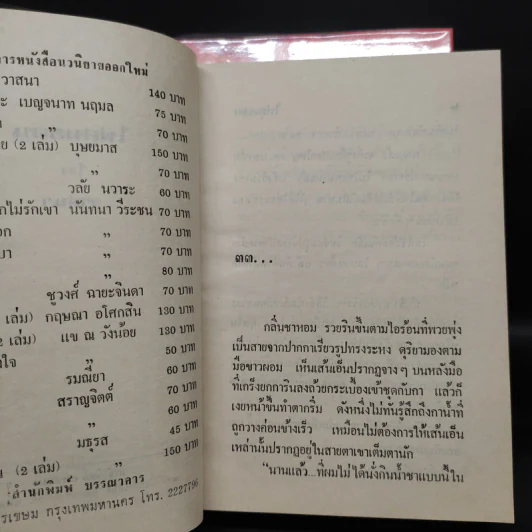 การหนังสือนวนิยายออกใหม่
วาสนา 140 บาท
ะ เบญจนาท นฤมล 75 บาท
" 70 บาท
ย (2 เล่ม) บุษยมาส 150 บาท
" 70 บาท
วลัย นวาระ 60 บาท
กไม่รักเขา นันทนา วีระชน 70 บาท
อก " 70 บาท
ยา " 70 บาท
" 80 บาท
ชูวงศ์ ฉายะจินดา 70 บาท
เล่ม) กฤษณา อโศกสิน 130 บาท
2 เล่ม) แข ณ วังน้อย 130 บาท
งใจ " 50 บาท
รมณียา 60 บาท
สราญจิตต์ 70 บาท
" 60 บาท
มธุรส 45 บาท
ญ (2 เล่ม) " 150 บาท
สำนักพิมพ์ บรรณาคาร
รเขษม กรุงเทพมหานคร โทร. 2227796
๓๓...
กลิ่นชาหอม รวยรินขึ้นตามไอร้อนที่พวยพุ่ง
เป็นสายจากปากกาเรียวรูปทรงระหง ดุริยามองตาม
มือขาวผอม เห็นเส้นเอ็นปรากฏจาง ๆ บนหลังมือ
ที่เกร็งยกการินลงถ้วยกระเบื้องเข้าชุดกับกา แล้วก็
เงยหน้าขึ้นทำตากริ่ม ดังหนึ่งไม่ทันรู้สึกถึงกาน้ำที่
ถูกวางค่อนข้างเร็ว เหมือนไม่ต้องการให้เส้นเอ็น
เหล่านั้นปรากฏอยู่ในสายตาเขาเต็มตานัก
"นานแล้ว...ที่ผมไม่ได้นั่งกินน้ำชาแบบนี้ใน